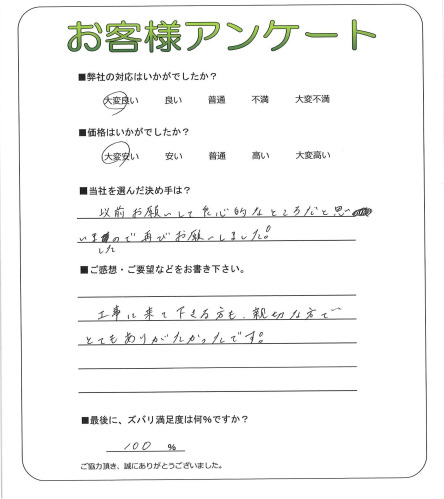 お客様アンケート
■弊社の対応はいかがでしたか?
大変良い 良い 普通 不満 大変不満
■価格はいかがでしたか?
大変安い 安い 普通 高い 大変高い
■当社を選んだ決め手は?
以前お願いして良心的なところだと思い
いましたので再びお願いしました!
■ご感想・ご要望などをお書き下さい。
工事に来て下さる方も、親切な方で
とてもありがたかったです!
■最後に、ズバリ満足度は何%ですか?
100 %
ご協力頂き、誠にありがとうございました。